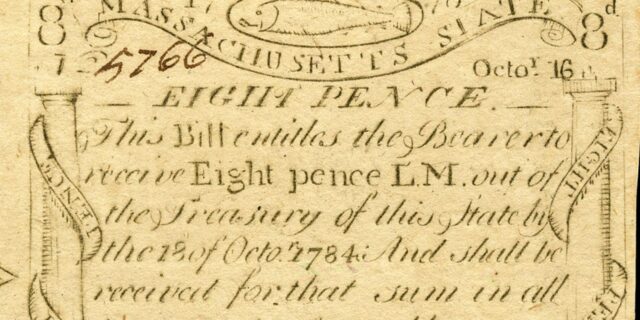 8 17 78 8d
MASSACHUSETTS STATE
5766
Octor. 16
EIGHT PENCE.
This Bill entitles the Bearer to
receive Eight pence L.M. out of
the Treasury of this State by
the 18 of Octo.r 1784. And shall be
received for that sum in all
PENCE
EIGHT